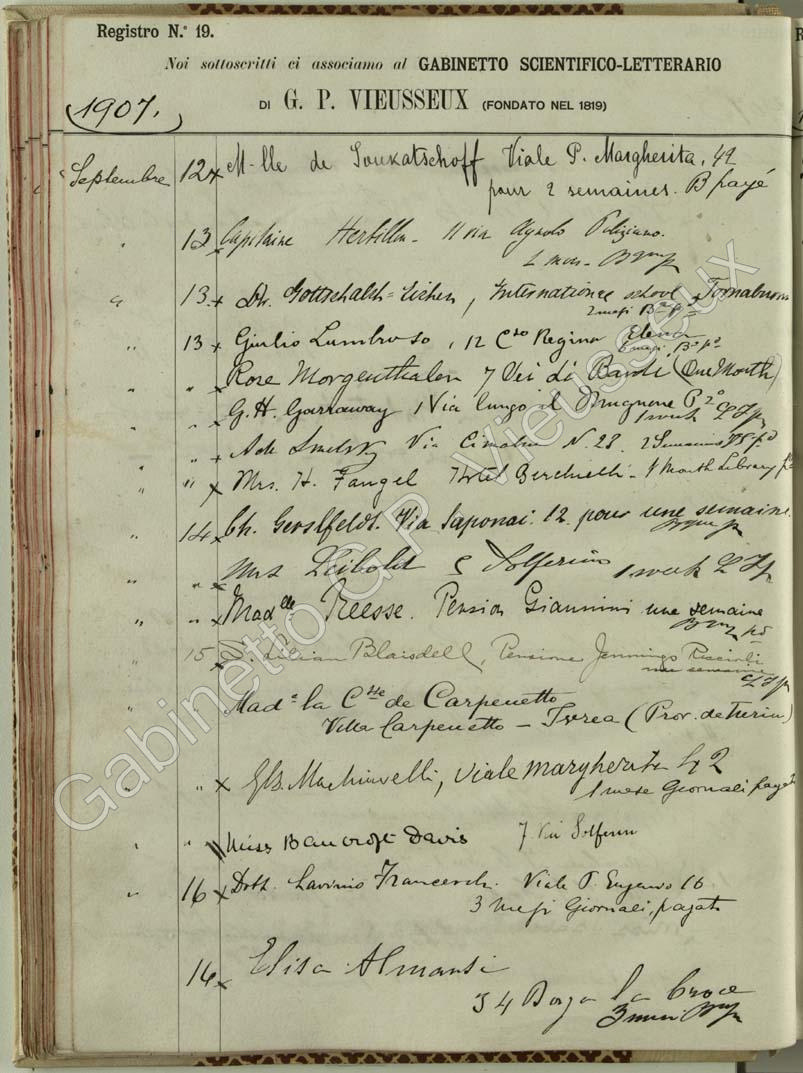 Registro N.° 19.
Noi sottoscritti ci associamo al GABINETTO SCIENTIFICO-LETTERARIO
DI G. P. VIEUSSEUX (FONDATO NEL 1819)
1907.
Septembre 12 x M-lle de Soukatschoff Viale P. Margherita, 42
pour 2 semaines. B payé
" 13 x Capitaine Herbillon - 11 via Agnolo Poliziano.
" 13 x Dr. Gottschalch-Eichen, International school Tornabuoni
2 mesi
" 13 x Giulio Lumbroso, 12 Cso Regina Elena
6 mesi,
" " Rose Morgenthaler 7 Via di Bardi (One Month)
" " G. H. Garraway 1 Via lungo il Mugnone P 2°
1 week
" " x Ade Via Cimabue N. 28.
" " x Mrs. H. Fangel Hotel Berchielli - 1 Month Library pd
" 14 x Ch. Gerstfeldt. Via Saponai 12. pour une semaine.
" " x Mrs Leibold 5 Solferino 1 week
" " x Madlle Reesse. Pension Giannini une semaine
" 15 x Lilian Blaisdell, Pensione Jennings Riccioli
une semaine
Made la Csse de Carpenetto
Villa Carpenetto - Ivrea (Prov. de Turin)
" " x Machiavelli, Viale Margherita 42
1 mese Giornali pagato
" " Miss Bancroft Davis 7 Via Solferino
" 16 x Dott. Lavinio Franceschi. Viale P. Eugenio 16
3 mesi Giornali, pagati
16 x Elisa Almansi
34 Borgo la Croce
3 mesi
Gabinetto G.P. Vieusseux